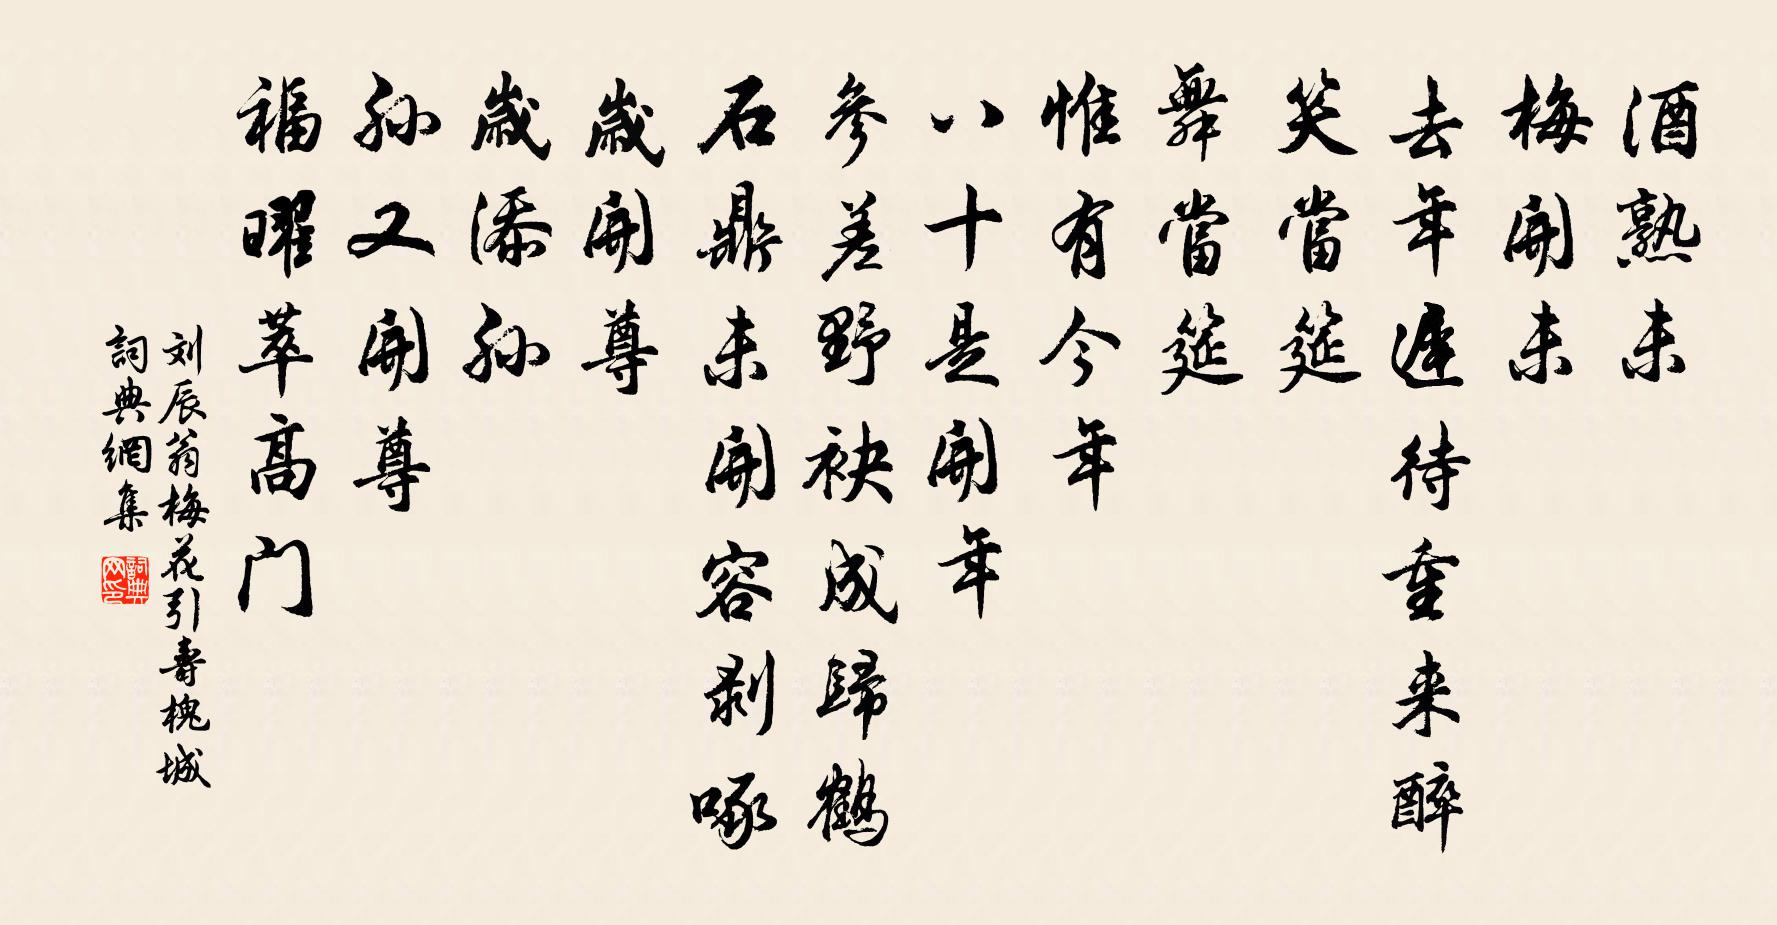 酒熟未
梅開未
去年遲待重来醉
笑當筵
舞當筵
惟有今年
八十是開年
參差野袂成歸鶴
石鼎未開容剥啄
歲開尊
歲添孫
孫又開尊
福曜萃高门
刘辰翁梅花引壽槐城
詞典網集
詞典网印